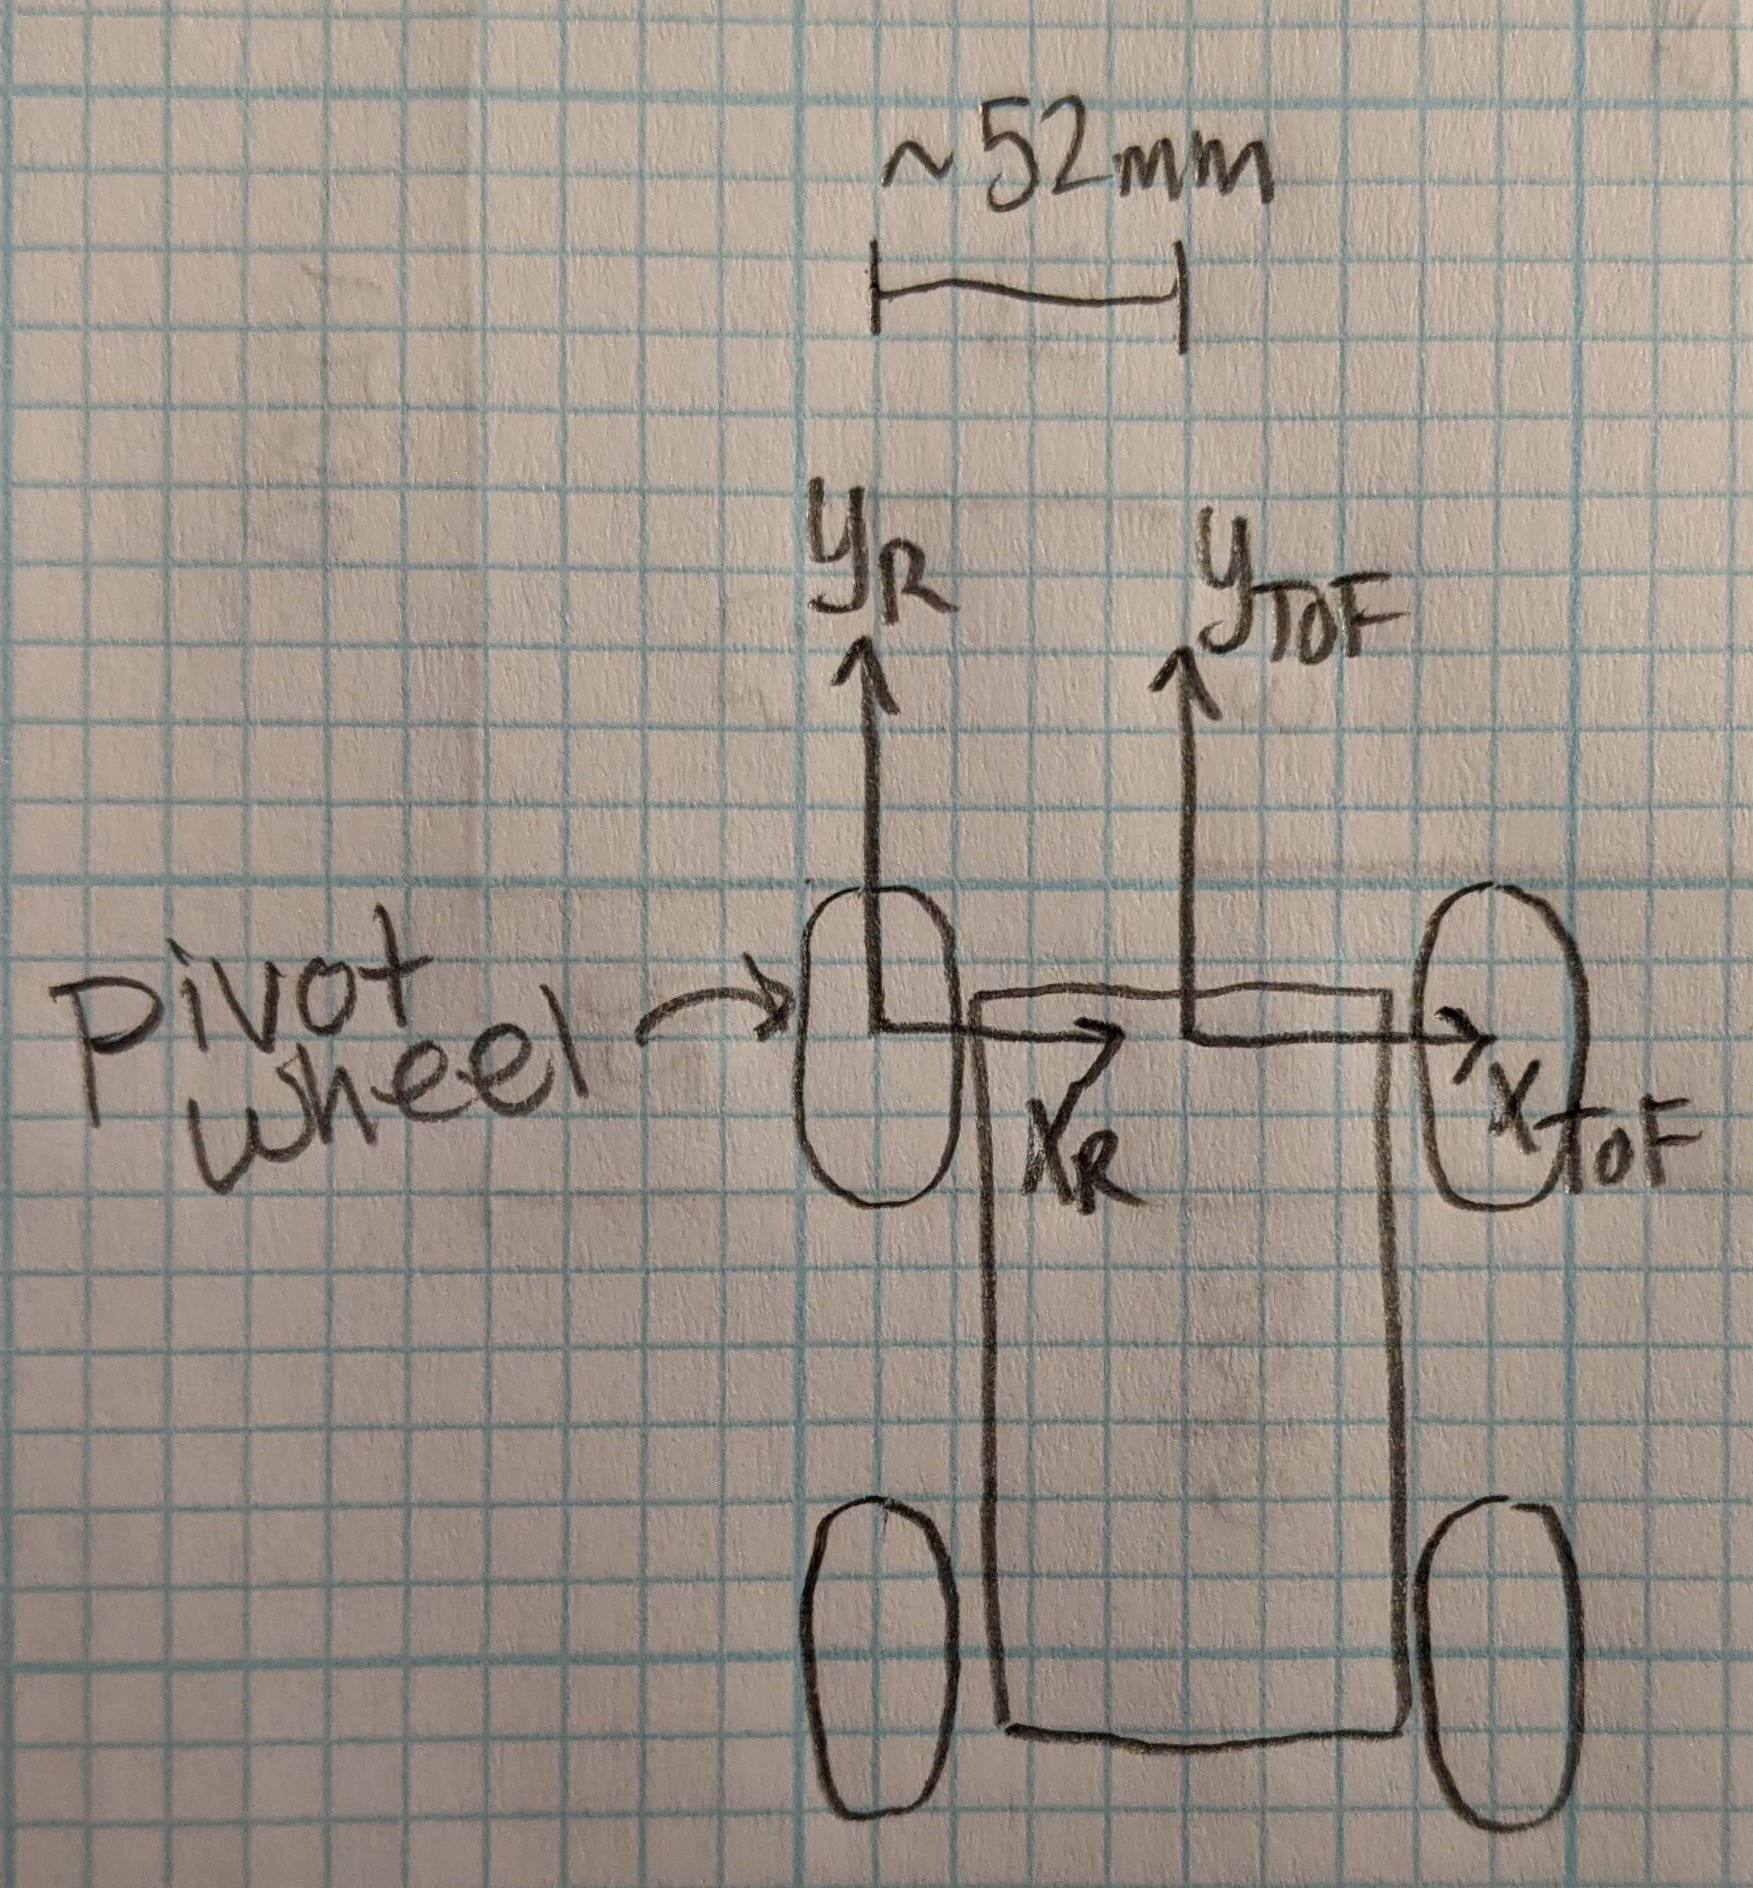 ~52mm
yR
yTOF
Pivot
wheel
xR
xTOF